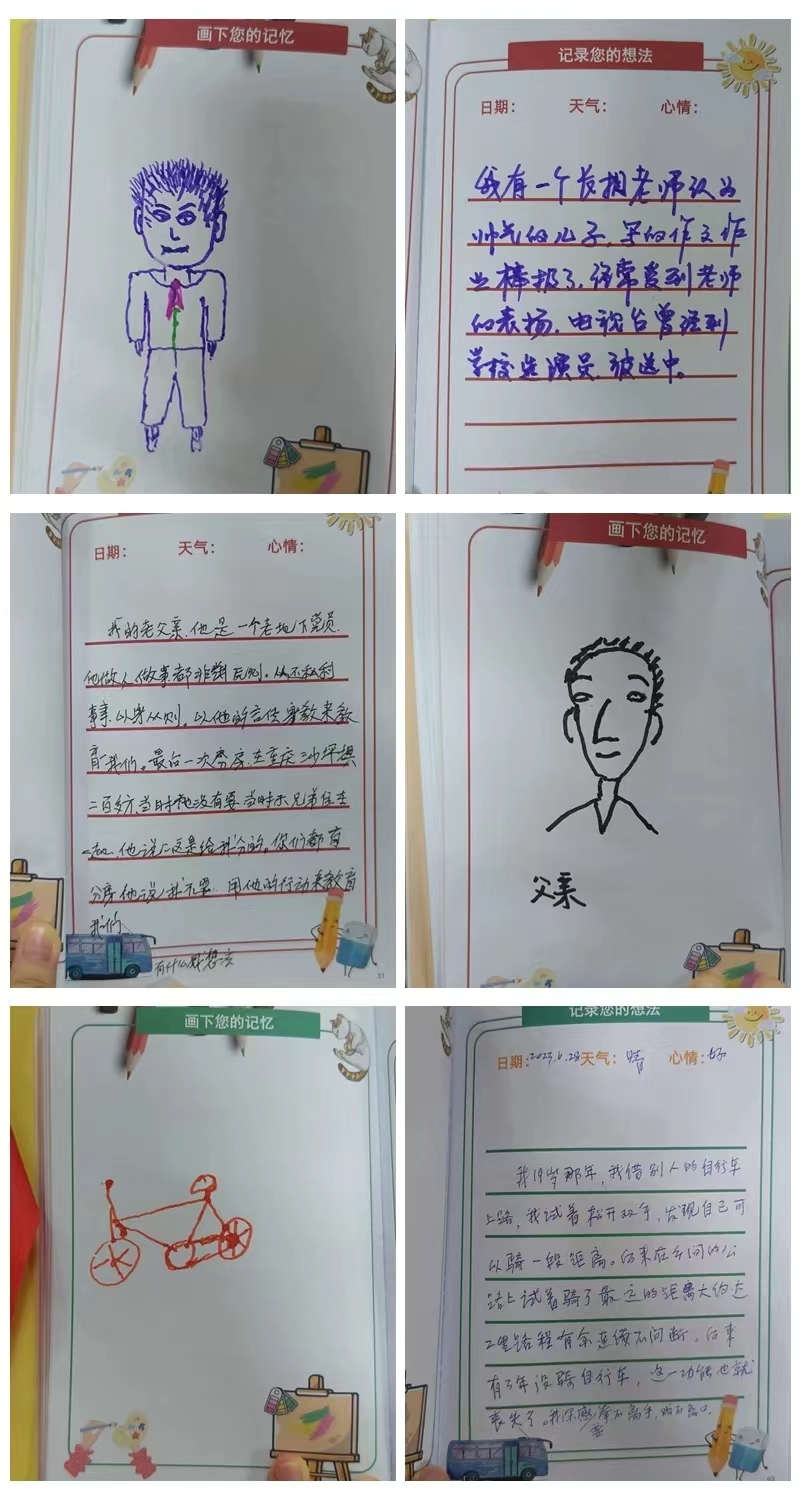 画下您的记忆
记录您的想法
日期： 天气： 心情：
我有一个长相老师认为
帅气的儿子，写的作文作
业棒极了，经常受到老师
的表扬，电视台曾经到
学校选演员，被选中。
日期： 天气： 心情：
我的老父亲，他是一个老地下党员，
他做人做事都非常 从不私利
事事以身 则，以他的言传身教来教
育我们。最后一次分房，在重庆沙坪坝
二百多方，当时他没有要，当时 兄弟住在
一起，他说这是给我分的，你们都有
分房他说我不要，用他的行动来教育
我们
有什么 想法
31
画下您的记忆
父亲
画下您的记忆
记录您的想法
日期：2023.6.28 天气：晴 心情：好
我19岁那年，我借别人的自行车
上路，我试着松开双手，发现自己可
以骑一段距离。后来在乡间的公
路上试着骑了最远的距离大约达
2里路程有余连续不间断，后来
有3年没骑自行车，这一功能也就
丧失了。我深感拳不离手，曲不离口